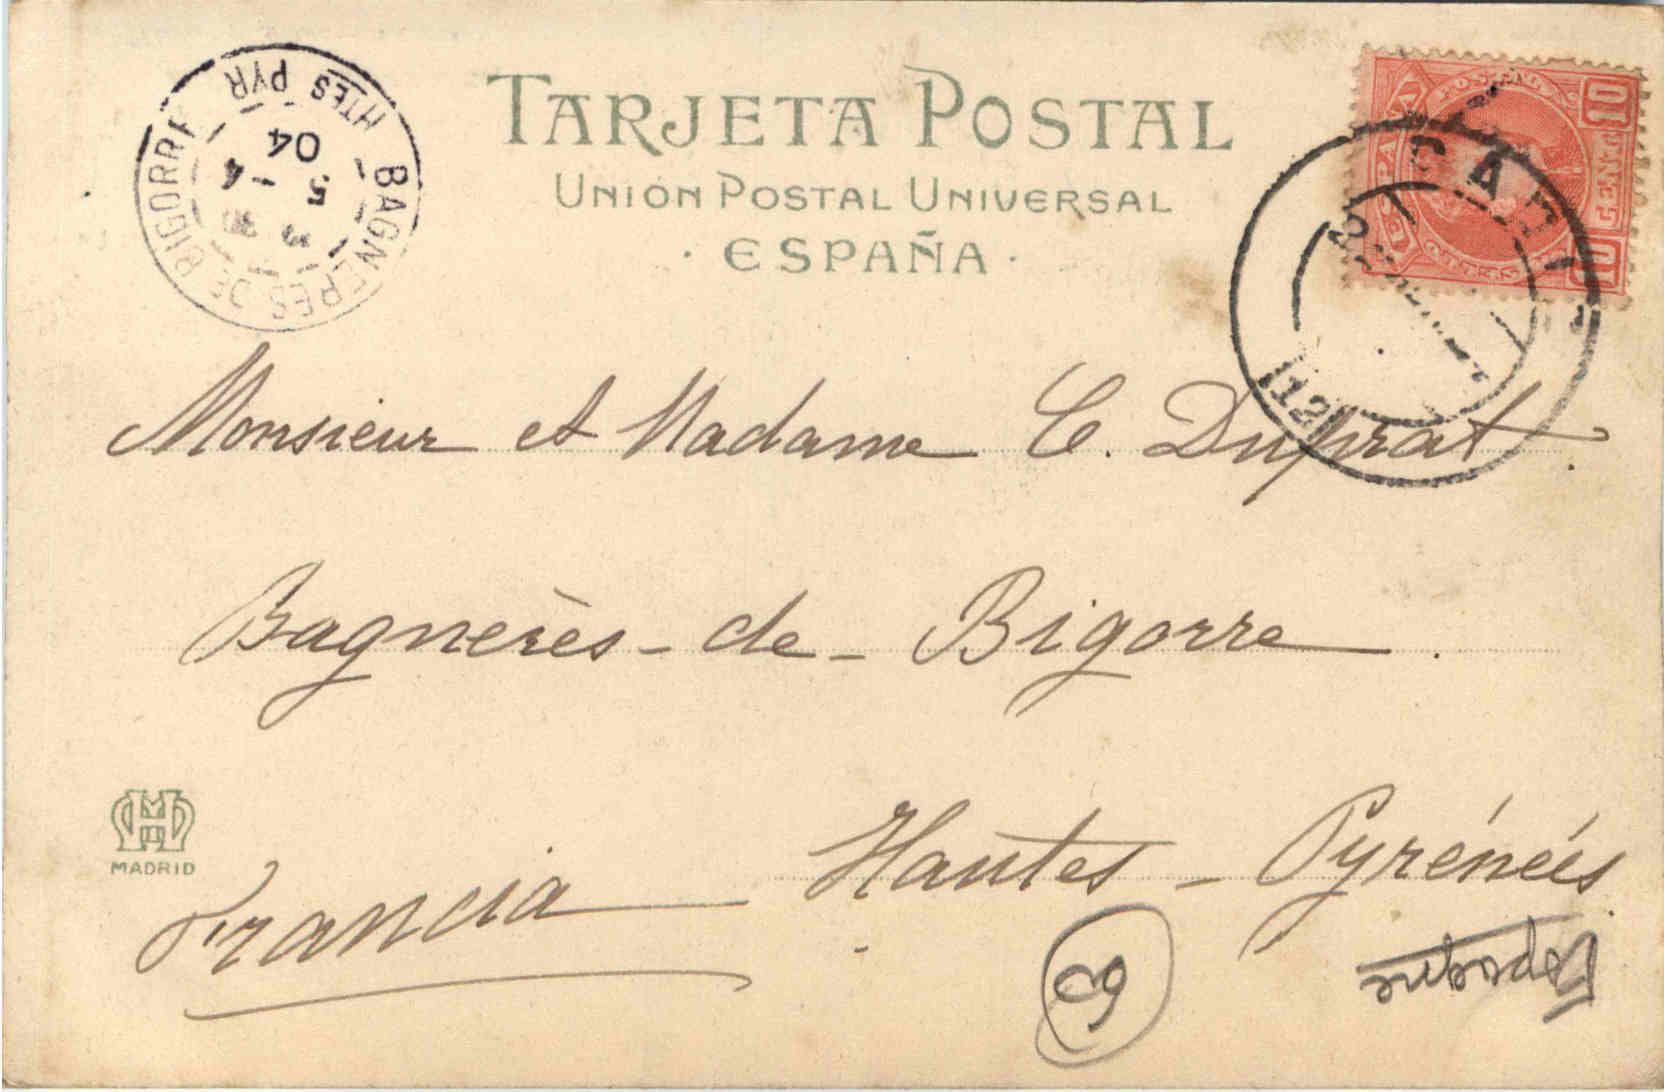 TARJETA POSTAL
UNIÓN POSTAL UNIVERSAL
· ESPAÑA ·
BAGNERES DE BIGORRE
HTES PYR
5 -4
04
10
CENT
10
CADI
12
Monsieur et Madame C. Duprat.
Bagnères-de-Bigorre.
MADRID
Hautes-Pyrénées
Francia
Espagne